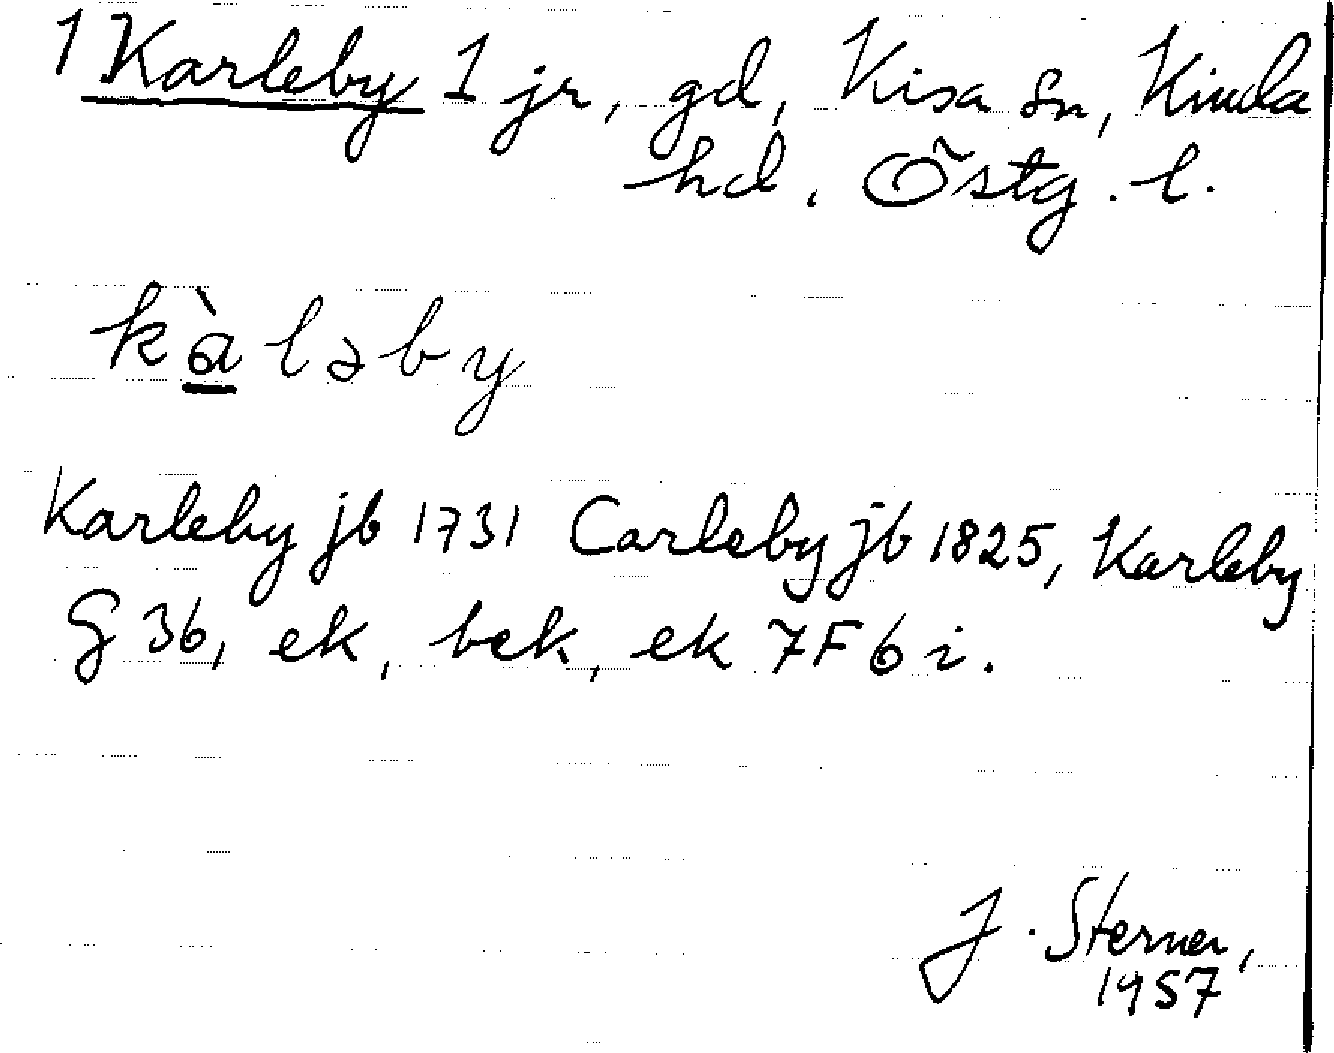 1 Karleby 1 jr, gd, Kisa sn, Kinda
hd, Östg. l.
kàləby
Karleby jb 1731 Carleby jb 1825, Karleby
G 36, ek, bek, ek 7F6i.
J. Sterner,
1957